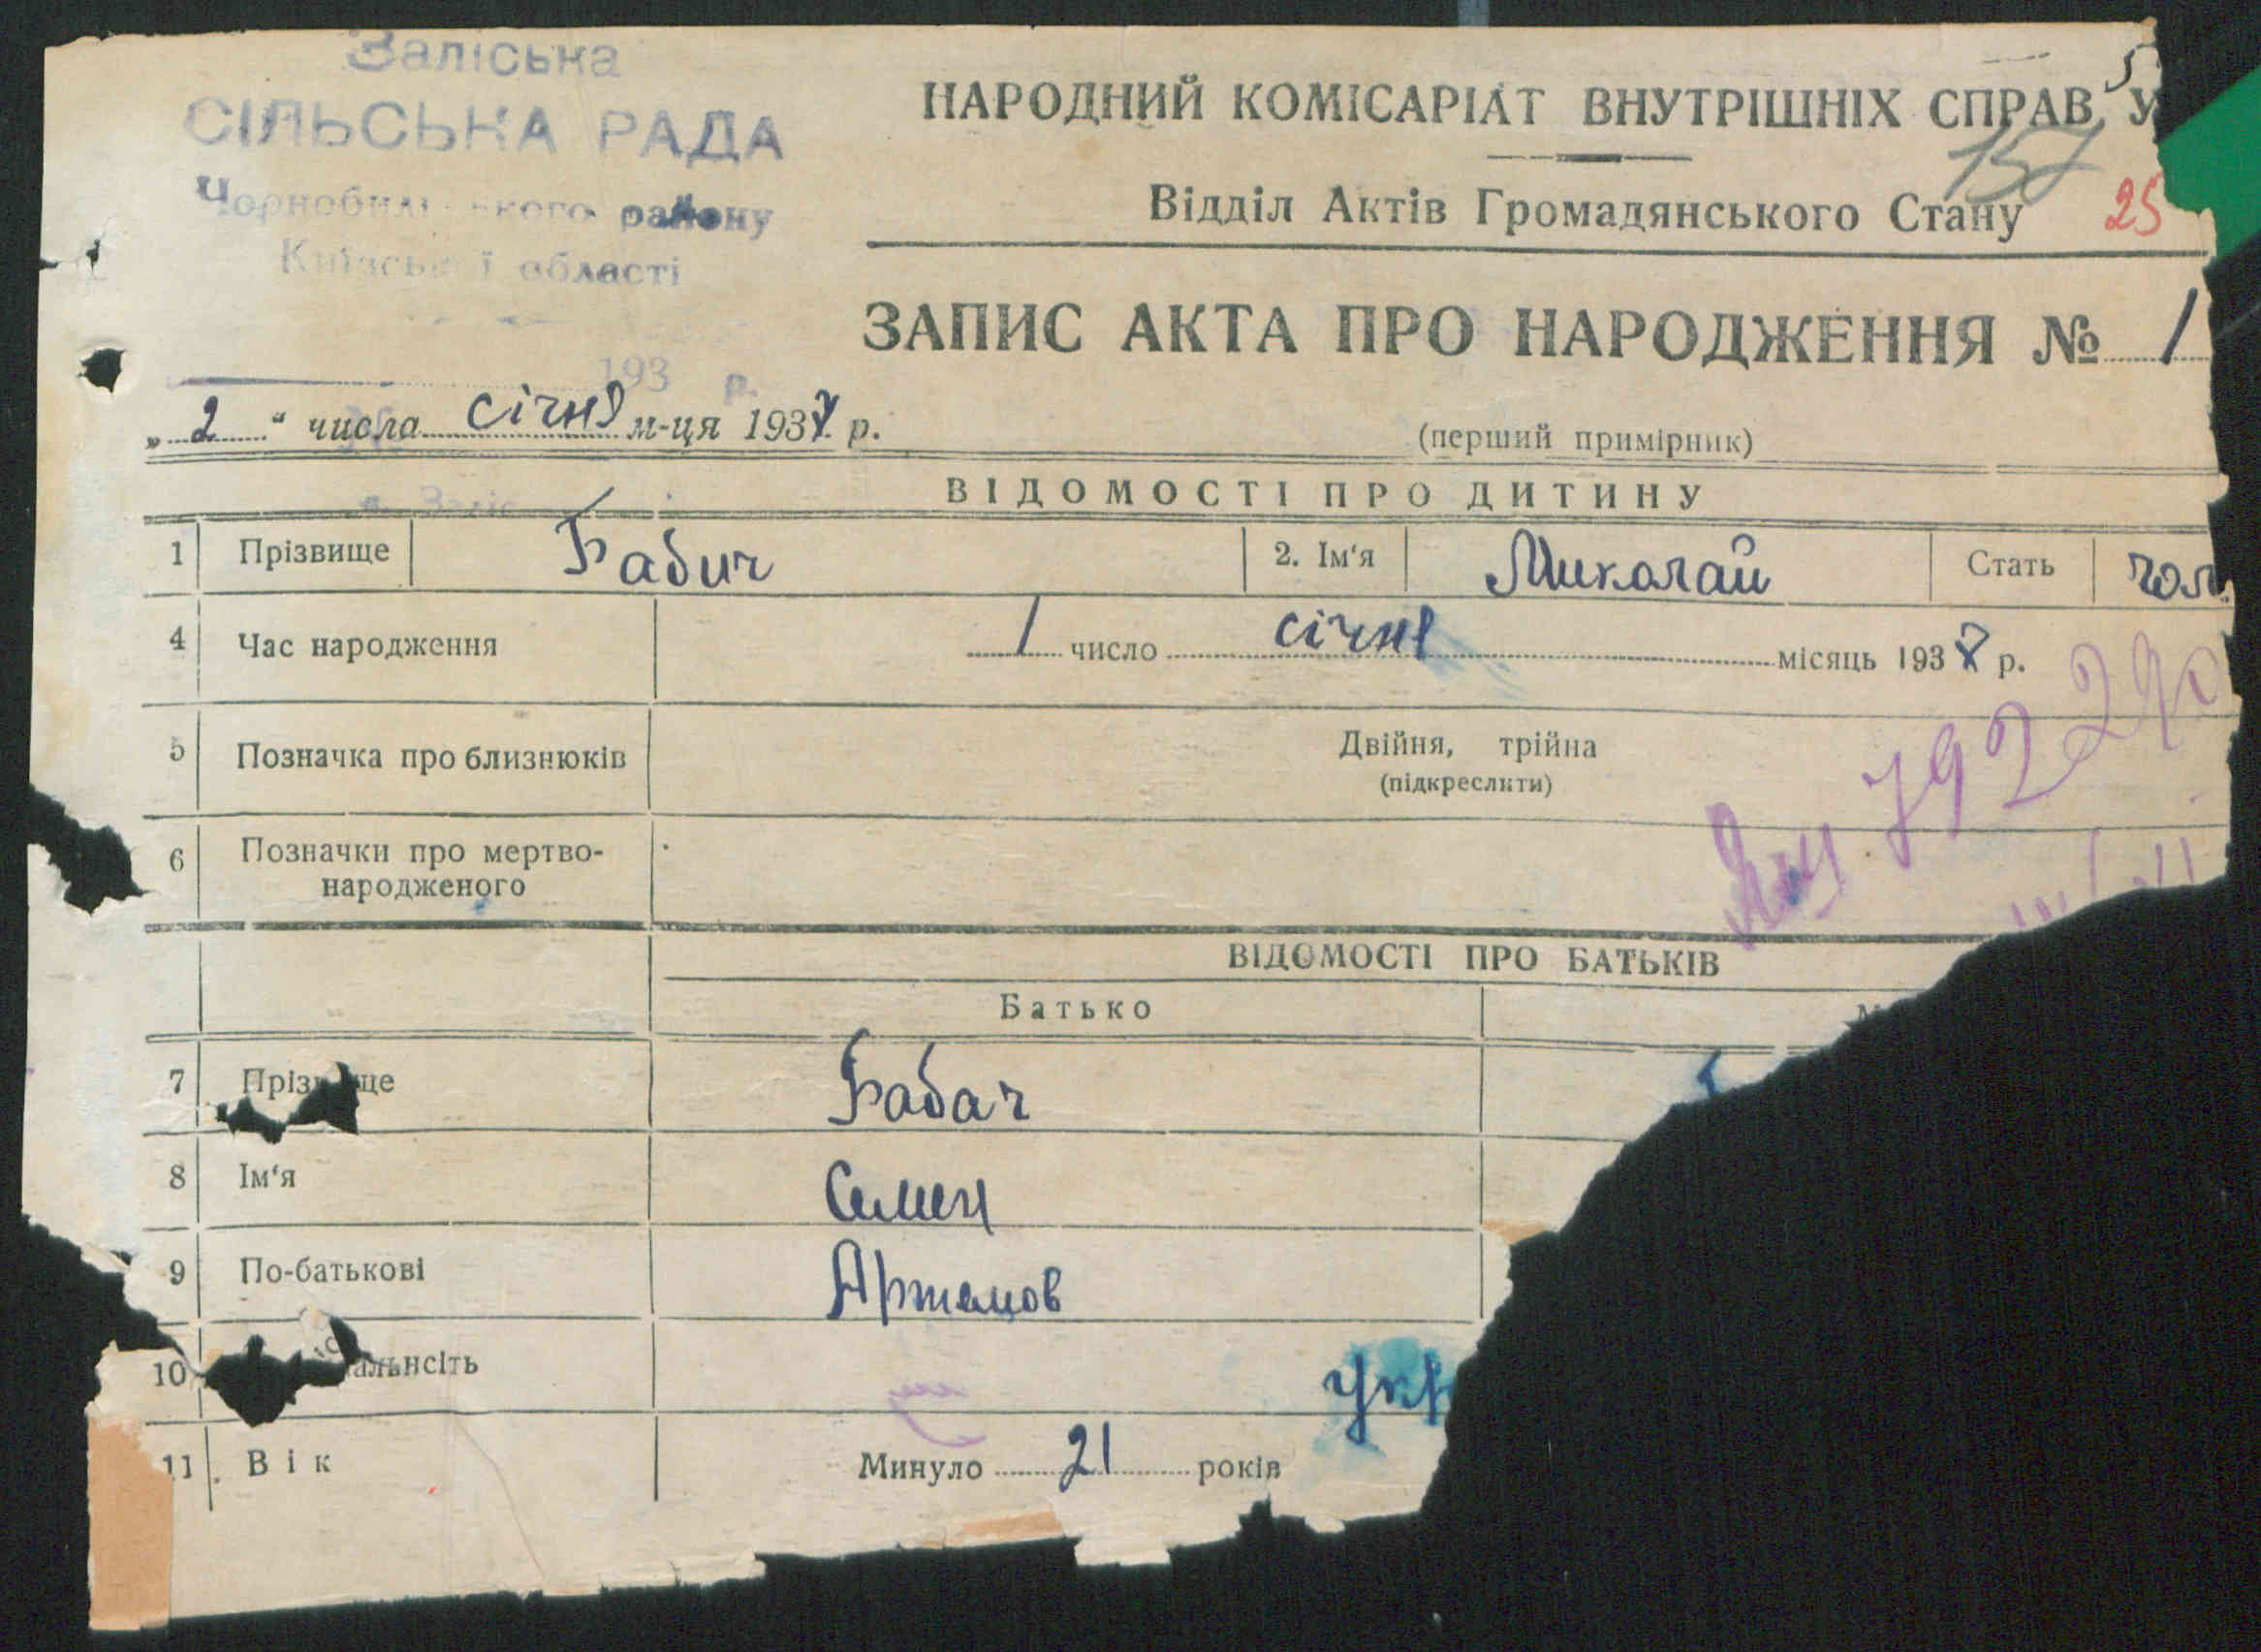 Заліська
СІЛЬСЬКА РАДА
Чорнобильського району
Київської області
193 р.
НАРОДНИЙ КОМІСАРІАТ ВНУТРІШНІХ СПРАВ У
157
Відділ Актів Громадянського Стану 25
ЗАПИС АКТА ПРО НАРОДЖЕННЯ № 1
„2“ числа січня м-ця 1937 р.
(перший примірник)
ВІДОМОСТІ ПРО ДИТИНУ
1 Прізвище Бабич 2. Ім‘я Миколай Стать чол.
4 Час народження 1 число січня місяць 1937 р.
5 Позначка про близнюків Двійня, трійна
(підкреслити)
6 Позначки про мертво-
народженого
ВІДОМОСТІ ПРО БАТЬКІВ
Батько М
7 Пріз ще Бабач
8 Ім‘я Семен
9 По-батькові Артемов
10 альнсіть укр
11 Вік Минуло 21 років